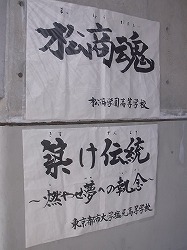 松商魂
松商学園高等学校
築け伝統
〜燃やせ夢への執念〜
東京都市大学塩尻高等学校